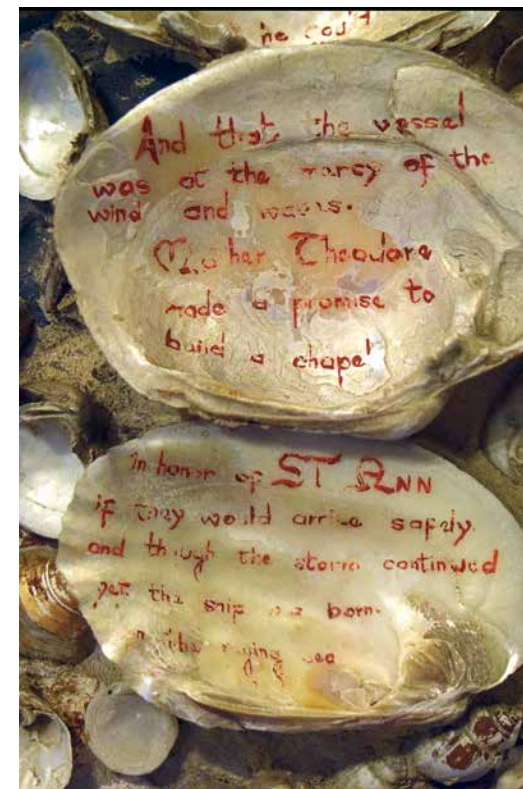 he cou
And that the vessel
was at the mercy of the
wind and waves.
Mother Theodore
made a promise to
build a chapel
in honor of ST ANN
if they would arrive safely.
and though the storm continued
yet the ship was born.
on the raging sea